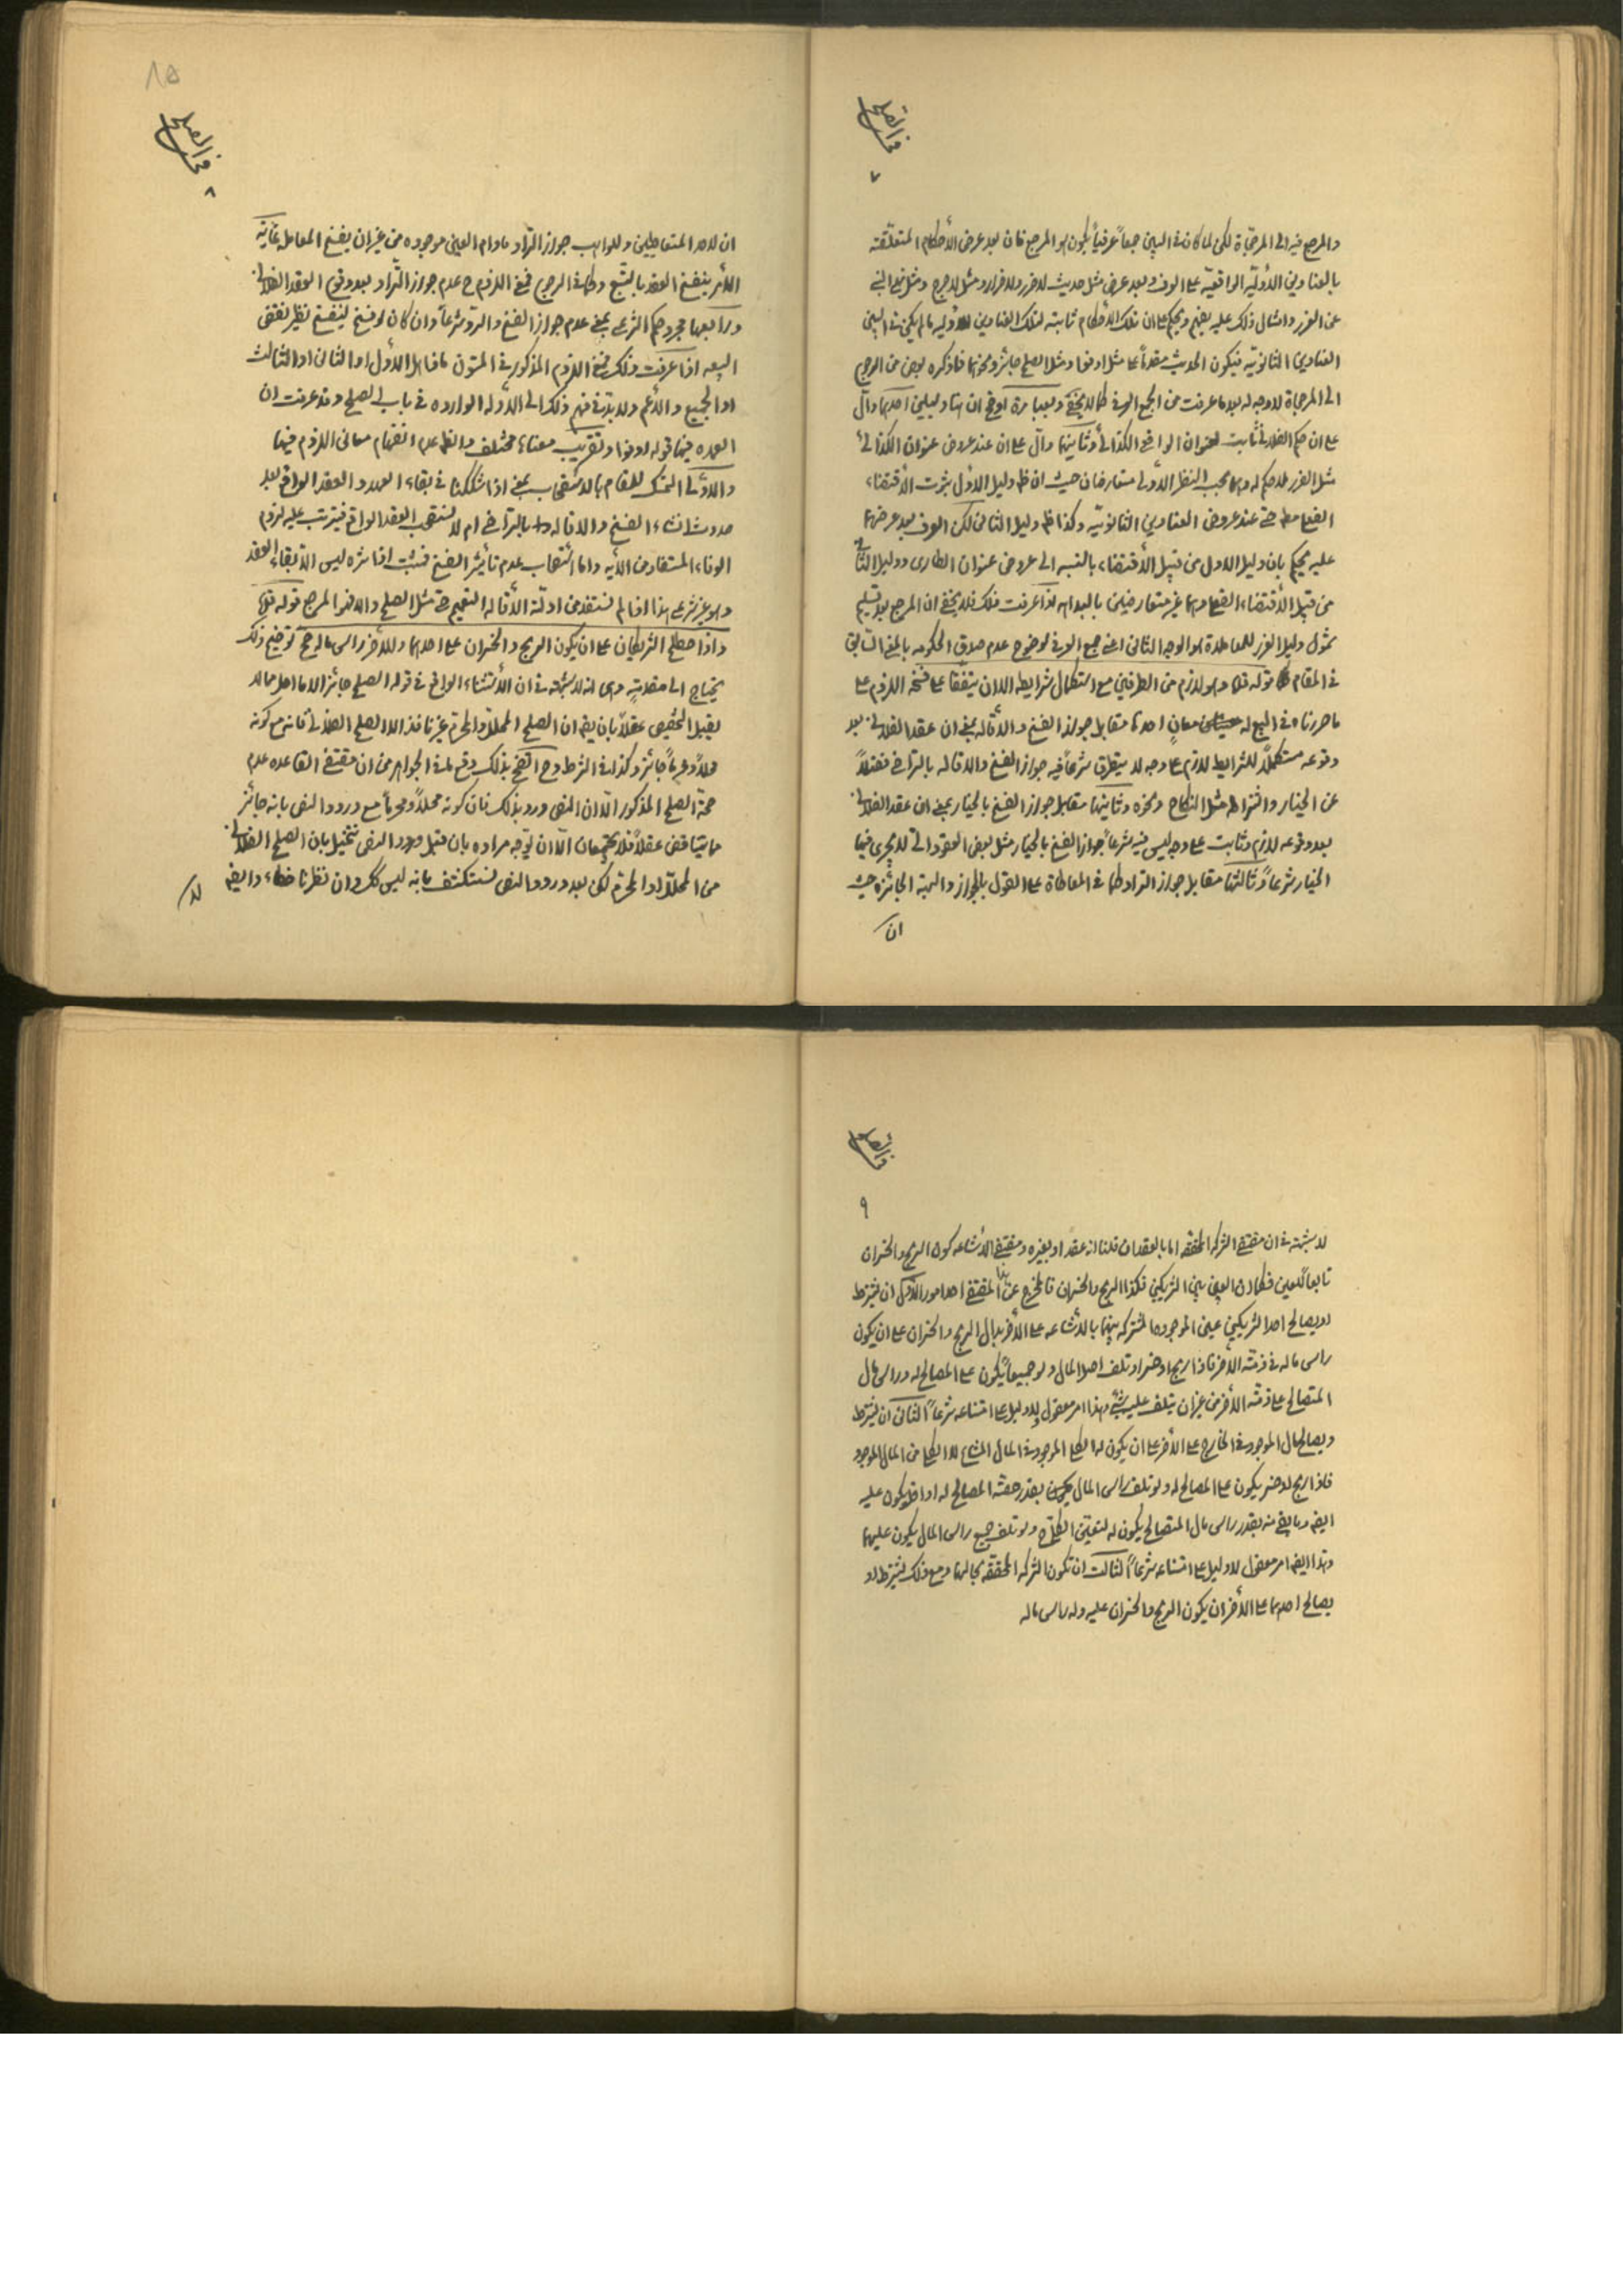 في الصلح
٧
والمرجع فيه الى المرجحات لكن لما كان في البين جمعاً عرفياً يكون هو المرجع فان بعد عرض الأحكام المتعلقة
بالعناوين الأولية الواقعية على العرف وبعد عرض مثل حديث لا ضرر ولا ضرار ومثل لا حرج ومثل نهى النبي
عن الغرر وامثال ذلك عليه يفهم ويحكم على ان تلك الأحكام ثابته لتلك العناوين الأوليه ما لم يكن في البين
العناوين الثانويه فيكون الحديث مقدماً على مثل اوفوا ومثل الصلح جائز ونحوهما فما ذكره بعض من الرجوع
الى المرجحات لا وجه له بعد ما عرفت من الجمع العرفي كما لا يخفى وبعبارة اوضح ان هنا دليلين احدهما دال
على ان حكم الفلانى ثابت لعنوان الواقع الكذائى وثانيهما دال على ان عند عروض عنوان الكذائى
مثل الغرر لا حكم له وهما بحسب النظر الأولى متعارضان حيث ان ظ دليل الأول ثبوت الأقتضاء
الفعلى مط حتى عند عروض العناوين الثانويه وكذا ظ دليل الثانى لكن العرف بعد عرضهما
عليه يحكم بان دليل الاول من قبيل الأقتضاء بالنسبه الى عروض عنوان الطارى ودليل الثانى
من قبيل الأقتضاء الفعلى وهما غير متعارضين بالبداهه اذا عرفت ذلك فلا يخفى ان المرجع بعد تسليم
شمول دليل الغرر للمعاملة هو الوجه الثانى اعنى جمع العرفى لوضوح عدم صدق الحكومه بالمعنى السابق
في المقام قوله قده وهو لازم من الطرفين مع استكمال شرايطه الا ان يتفقا على فسخه اللزوم على
ما حررناه في البيع له معانٍ احدها مقابل جواز الفسخ والأقاله بمعنى ان عقد الفلانى بعد
وقوعه مستكملاً للشرايط لازم على وجه لا يتطرق شرعاً فيه جواز الفسخ والاقاله بالتراضى فضلاً
عن الخيار واشتراطه مثل النكاح ونحوه وثانيهما مقابل جواز الفسخ بالخيار بمعنى ان عقد الفلانى
بعد وقوعه لازم وثابت على وجه ليس فيه شرعاً جواز الفسخ بالخيار مثل بعض العقود التى لا يجرى فيها
الخيار شرعاً وثالثها مقابل جواز التراد كما في المعاطاة على القول بالجواز والهبة الجائزه حيث
ان
في الصلح
٨
ان لاحد المتعاطيين وللواهب جواز التراد مادام العين موجوده من غير ان يفسخ المعامله غاية
الأمر ينفسخ العقد بالتبع وكما في الرجوع فمعنى اللزوم ح عدم جواز التراد بعد وقوع العقد الفلانى
ورابعها مجرد حكم الشرعى بمعنى عدم جواز الفسخ والرد شرعاً وان كان لو فسخ لينفسخ نظير نقض
البيعه اذا عرفت ذلك فمعنى اللزوم المذكور في المتون ماذا هل الأول او الثانى او الثالث
او الجميع والأعم ولا بد في فهم ذلك الى الأدله الوارده في باب الصلح وقد عرفت ان
العمده فيها قوله اوفوا وتقريب معناه مختلف والظ عدم انفهام معانى اللزوم فيها
والأولى التمسك للمقام بالاستصحاب بمعنى اذا شككنا في بقاء العهد والعقد الواقع بعد
حدوث انشاء الفسخ والاقاله بالتراضى ام لا نستصحب العقد الواقع فيترتب عليه لزوم
الوفاء المستفاد من الآيه واما استصحاب عدم تأثير الفسخ فمثبت اذ اثره ليس الا بقاء العقد
وهو غير شرعى هذا اذا لم نستفد من ادلة الأقاله التعميم حتى مثل الصلح والا فهو المرجع قوله قده
واذا اصطلح الشريكان على ان يكون الربح والخسران على احدهما وللآخر راس ماله صح توضيح ذلك
يحتاج الى مقدمة وهى انه لا شبهة في ان الأستثناء الواقع في قوله الصلح جائز الا ما احل مما لا
يقبل التخصيص عقلاً بان يقم ان الصلح المحلل والمحرم غير نافذ الا الصلح الفلانى فانه مع كونه
محللاً ومحرماً جائز وكذا في الشرط وح اتضح بذلك وقع ما في الجواهر من ان مقتضى القاعده عدم
صحة الصلح المذكور الا ان النص ورد بذلك فان كونه محللاً ومحرماً مع ورود النص بانه جائز
مما يتناقض عقلاً فلا يجتمعان الا ان توجه مراده بان قبل ورود النص نتخيل بان الصلح الفلانى
من المحلل او المحرم لكن بعد ورود النص نستكشف بانه ليس كك وان نظرنا خطاء وايضم
لا
في الصلح
٩
لا شبهة في ان مقتضى الشركه المحققه اما بالعقد ان قلنا انه عقد او بغيره ومقتضى الأشاعه كون الربح والخسران
تابعاً للعين فكما ان العين بين الشريكين فكذا الربح والخسران فالمخرج عن هذا المقتضى احد امور الأول ان يشترط
او يصالح احد الشريكين عين الموجوده المشتركه بينهما بالأشاعه على الآخر بدل الربح والخسران على ان يكون
راس ماله في ذمته الآخر فاذا ربح او خسر او تلف اصل المال ولو جميعاً يكون على المصالح له وراس مال
المتصالح على ذمته الآخر من غير ان يتلف عليه شئ وهذا امر معقول لا دليل على امتناعه شرعاً الثانى ان يشترط
ويصالح مال الموجود في الخارج على الآخر على ان يكون له الكلى الموجود في المال المشاع لا الكلى من المال الموجود
فاذا ربح او خسر يكون على المصالح له ولو تلف راس المال بقدر حصة المصالح له او اقل يكون عليه
ايضم وما بقى منه بقدر راس مال المتصالح يكون له لتعين الكلى ح ولو تلف جميع راس المال يكون عليهما
وهذا ايضم امر معقول لا دليل على امتناعه شرعاً الثالث ان تكون الشركه المحققه بحالها ومع ذلك يشترط او
يصالح احدهما على الآخر ان يكون الربح والخسران عليه وله راس ماله